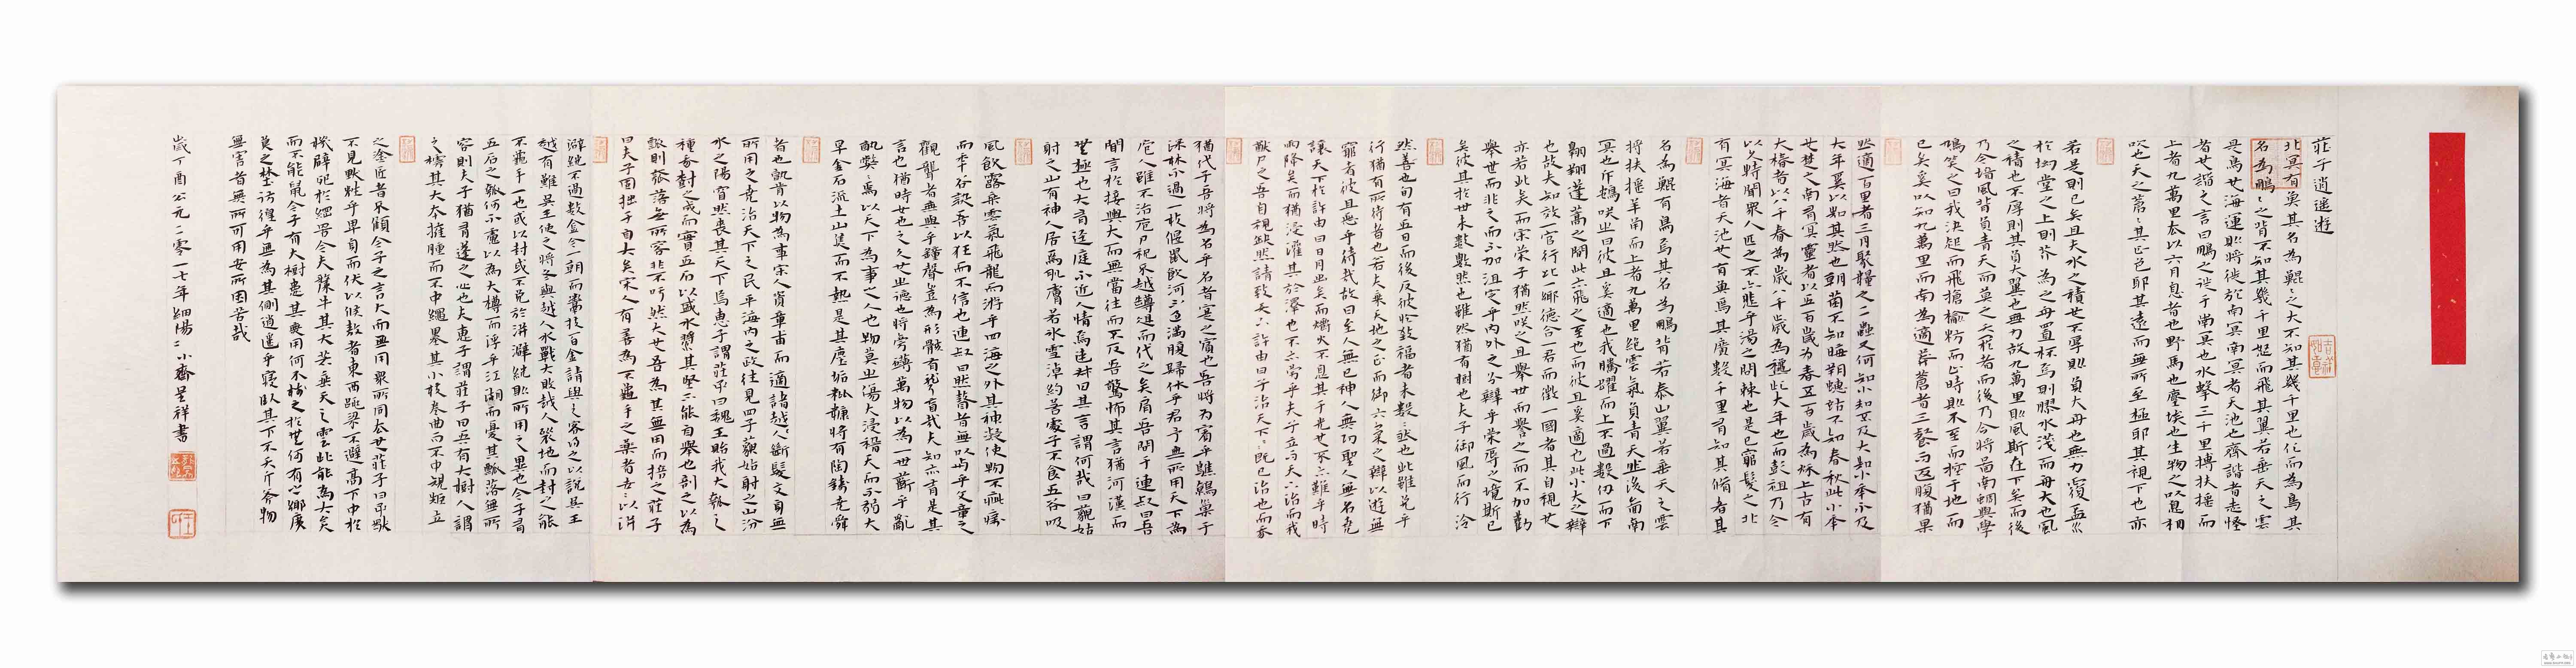 莊子逍遙遊
北冥有魚其名為鯤〻之大不知其幾千里也化而為鳥其
名為鵬〻之背不知其幾千里怒而飛其翼若垂天之雲
是鳥也海運則將徙於南冥南冥者天池也齊諧者志怪
者也諧之言曰鵬之徙于南冥也水擊三千里摶扶搖而
上者九萬里去以六月息者也野馬也塵埃也生物之以息相
吹也天之蒼〻其正色耶其遠而無所至極耶其視下也亦
若是則已矣且夫水之積也不厚則負大舟也無力覆盃水
於坳堂之上則芥為之舟置杯焉則膠水淺而舟大也風
之積也不厚則其負大翼也無力故九萬里則風斯在下矣而後
乃今培風背負青天而莫之夭閼者而後乃今將圖南蜩與學
鳩笑之曰我決起而飛搶榆枋而止時則不至而控于地而
已矣奚以知九萬里而南為適莽蒼者三餐而返腹猶果
然適百里者三月聚糧之二蟲又何知小知不及大知小年不及
大年奚以知其然也朝菌不知晦朔蟪蛄不知春秋此小年
也楚之南有冥靈者以五百歲為春五百歲為秋上古有
大椿者以八千春為歲八千歲為穐此大年也而彭祖乃今
以久特聞眾人匹之不亦悲乎湯之問棘也是已窮髮之北
有冥海者天池也有魚焉其廣數千里有知其脩者其
名為鯤有鳥焉其名為鵬背若泰山翼若垂天之雲
將扶搖羊角而上者九萬里絕雲氣負青天然後圖南
冥也斥鴳笑之曰彼且奚適也我騰躍而上不過數仞而下
翱翔蓬蒿之間此亦飛之至也而彼且奚適也此小大之辯
也故夫知效一官行比一鄉德合一君而徵一國者其自視也
亦若此矣而宋榮子猶然笑之且舉世而譽之而不加勸
舉世而非之而不加沮定乎內外之分辯乎榮辱之境斯已
矣彼其於世未數數然也雖然猶有樹也夫子御風而行泠
然善也旬有五日而後反彼於致福者未數〻然也此雖免乎
行猶有所待者也若夫乘天地之正而御六氣之辯以遊無
窮者彼且惡乎待哉故曰至人無已神人無功聖人無名堯
讓天下於許由曰日月出矣而爝火不息其于光也不亦難乎時
雨降矣而猶浸灌其於澤也不亦勞乎夫子立而天下治而我
猶尸之吾自視缺然請致天下許由曰子治天下〻既已治也而吾
猶代子吾將為名乎名者實之賓也吾將為賓乎鷦鷯巢于
深林不過一枝偃鼠飲河不過滿腹歸休乎君予無所用天下為
庖人雖不治庖尸祝不越罇俎而代之矣肩吾問于連叔曰吾
聞言於接輿大而無當往而不反吾驚怖其言猶河漢而
無極也大有逕庭不近人情焉連叔曰其言謂何哉曰藐姑
射之山有神人居焉肌膚若冰雪淖約若處子不食五谷吸
風飲露乘雲氣飛龍而游乎四海之外其神凝使物不疵癘
而年谷熟吾以狂而不信也連叔曰然瞽者無以與乎文章之
觀聾者無與乎鐘聲豈為形骸有聾盲哉夫知亦有是其
言也猶時女也之人也之德也將旁礡萬物以為一世蘄乎亂
孰弊〻焉以天下為事之人也物莫之傷大浸稽天而不溺大
旱金石流土山焦而不熱是其塵垢秕糠將有陶鑄堯舜
者也孰肯以物為事宋人資章甫而適諸越〻人斷髮文身無
所用之堯治天下之民平海內之政往見四子藐姑射之山汾
水之陽窅然喪其天下焉惠子謂莊子曰魏王貽我大瓠之
種我樹之成而實五石以盛水漿其堅不能自舉也剖之以為
瓢則瓠落無所容非不呺然大也吾為其無用而掊之莊子
曰夫子固拙于用大矣宋人有善為不龜手之藥者世〻以洴
澼絖不過數金今一朝而鬻技百金請與之客得之以說吳王
越有難吳王使之將冬與越人水戰大敗越人裂地而封之能
不龜手一也或以封或不免於洴澼絖則所用之異也今子有
五石之瓠何不慮以為大樽而浮乎江湖而憂其瓠落無所
容則夫子猶有蓬之心也夫惠子謂莊子曰吾有大樹人謂
之樗其大本擁腫而不中繩墨其小枝卷曲而不中規矩立
之塗匠者不顧今子之言大而無用眾所同去也莊子曰子獨
不見狸狌乎卑身而伏以候敖者東西跳梁不避高下中於
機辟死於罔罟今夫斄牛其大若垂天之雲此能為大矣
而不能鼠今子有大樹患其無用何不樹之於無何有之鄉廣
莫之埜彷徨乎無為其側逍遙乎寢臥其下不夭斤斧物
無害者無所可用安所困苦哉
歲丁酉公元二零一七年細陽小齋呈祥書